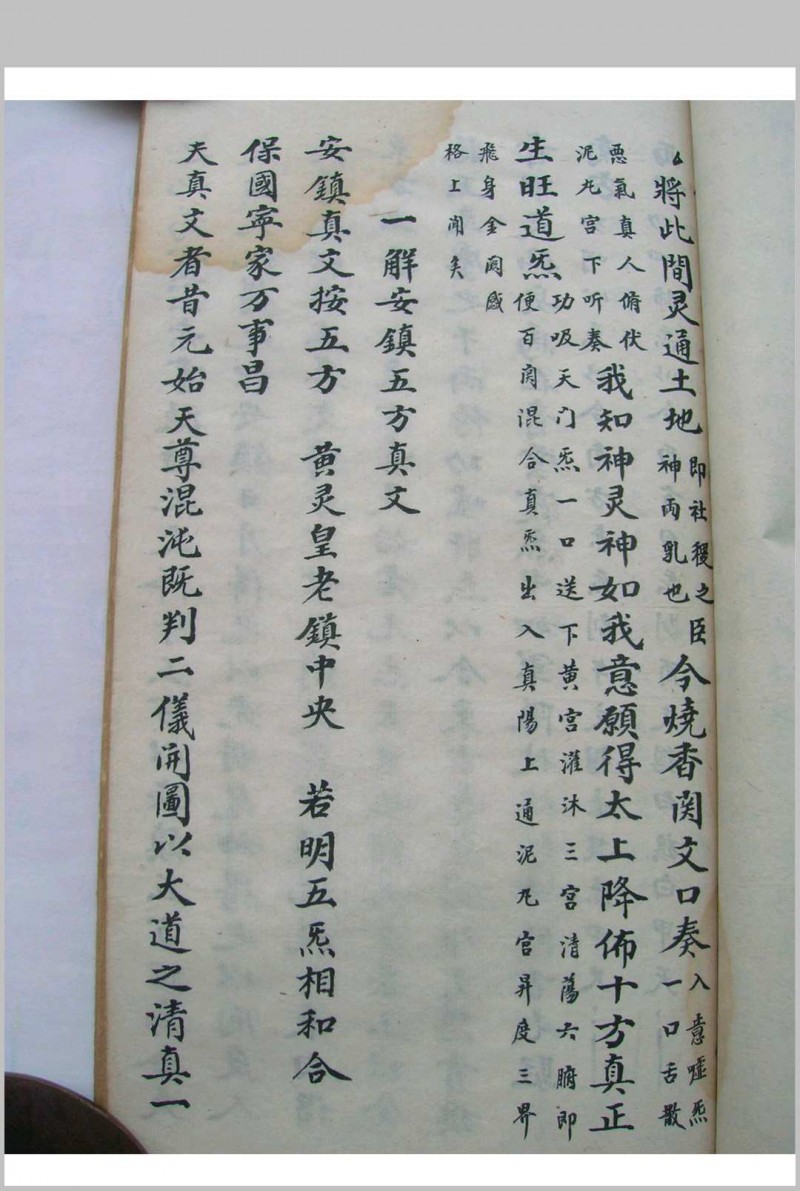 將此間灵通土地即社稷之臣神両乳也今燒香関文口奏入意嘘炁一口舌散
悪氣真人俯伏泥丸宮下听奏我知神灵神如我意願得太上降佈十方真正
生旺道炁功吸天门炁一口送下黄宮灌沐三宮清蕩六腑即便百関混合真炁出入真陽上通泥丸宮昇度三界
飛身金阙感格上闻矣
一解安鎮五方真文
安鎮真文按五方 黄灵皇老鎮中央 若明五炁相和合
保國寧家万事昌
夫真文者昔元始天尊混沌既判二儀開圖以大道之清真一